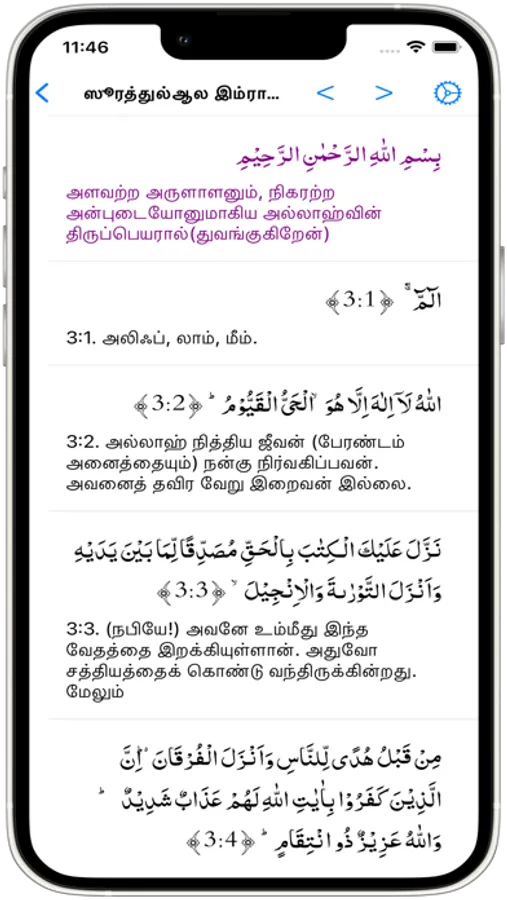 11:46
ஸூரத்துல்ஆல இம்ரா...
بِسْمِ اللهِ الرَّحْمٰنِ الرَّحِيْمِ
அளவற்ற அருளாளனும், நிகரற்ற
அன்புடையோனுமாகிய அல்லாஹ்வின்
திருப்பெயரால்(துவங்குகிறேன்)
الٓمّٓ ۙ ﴿3:1﴾
3:1. அலிஃப், லாம், மீம்.
اللهُ لَاۤ اِلٰهَ اِلَّا هُوَ ۙ الْحَىُّ الْقَيُّوْمُ ؕ ﴿3:2﴾
3:2. அல்லாஹ் நித்திய ஜீவன் (பேரண்டம்
அனைத்தையும்) நன்கு நிர்வகிப்பவன்.
அவனைத் தவிர வேறு இறைவன் இல்லை.
نَزَّلَ عَلَيْكَ الْـكِتٰبَ بِالْحَقِّ مُصَدِّقًا لِّمَا بَيْنَ يَدَيْهِ
وَاَنْزَلَ التَّوْرٰٮةَ وَالْاِنْجِيْلَ ۙ ﴿3:3﴾
3:3. (நபியே!) அவனே உம்மீது இந்த
வேதத்தை இறக்கியுள்ளான். அதுவோ
சத்தியத்தைக் கொண்டு வந்திருக்கின்றது.
மேலும்
مِنْ قَبْلُ هُدًى لِّلنَّاسِ وَاَنْزَلَ الْفُرْقَانَ ؕ اِنَّ
الَّذِيْنَ كَفَرُوْا بِاٰيٰتِ اللهِ لَهُمْ عَذَابٌ شَدِيْدٌ ؕ
وَاللهُ عَزِيْزٌ ذُو انْتِقَامٍ ؕ ﴿3:4﴾